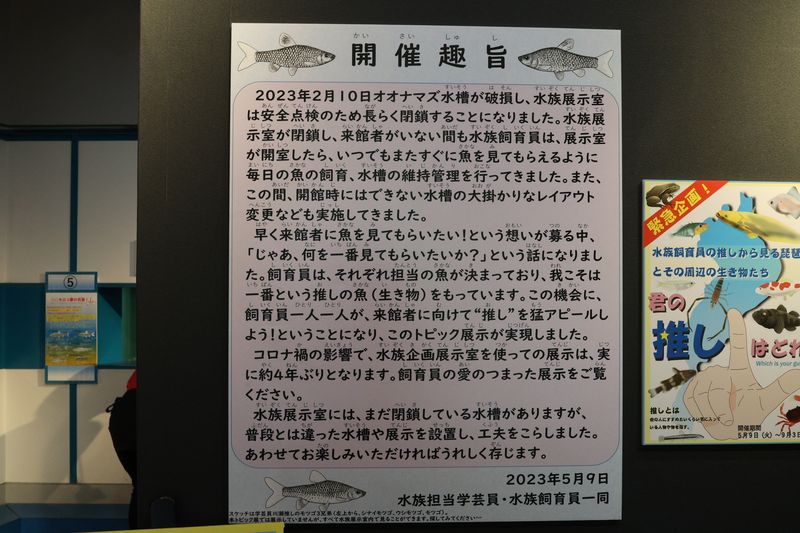 開催趣旨
2023年2月10日オオナマズ水槽が破損し、水族展示室
は安全点検のため長らく閉鎖することになりました。水族展
示室が閉鎖し、来館者がいない間も水族飼育員は、展示室
が開室したら、いつでもまたすぐに魚を見てもらえるように
毎日の魚の飼育、水槽の維持管理を行ってきました。また、
この間、開館時にはできない水槽の大掛かりなレイアウト
変更なども実施してきました。
早く来館者に魚を見てもらいたい!という想いが募る中、
「じゃあ、何を一番見てもらいたいか?」という話になりまし
た。飼育員は、それぞれ担当の魚が決まっており、我こそは
一番という推しの魚(生き物)をもっています。この機会に、
飼育員一人一人が、来館者に向けて“推し”を猛アピールし
よう!ということになり、このトピック展示が実現しました。
コロナ禍の影響で、水族企画展示室を使っての展示は、実
に約4年ぶりとなります。飼育員の愛のつまった展示をご覧
ください。
水族展示室には、まだ閉鎖している水槽がありますが、
普段とは違った水槽や展示を設置し、工夫をこらしました。
あわせてお楽しみいただければうれしく存じます。
2023年5月9日
水族担当学芸員・水族飼育員一同
スケッチは学芸員川瀬推しのモツゴ3兄弟(左上から、シナイモツゴ、ウシモツゴ、モツゴ)。
本トピック展では展示していませんが、すべて水族展示室内で見ることができます。探してみてください
⑤
緊急企画!
水族飼育員の推しから見る琵琶
とその周辺の生き物たち
君の
推し
はどれ
Which is your
推しとは
開催期間
5月9日(火)~9月3